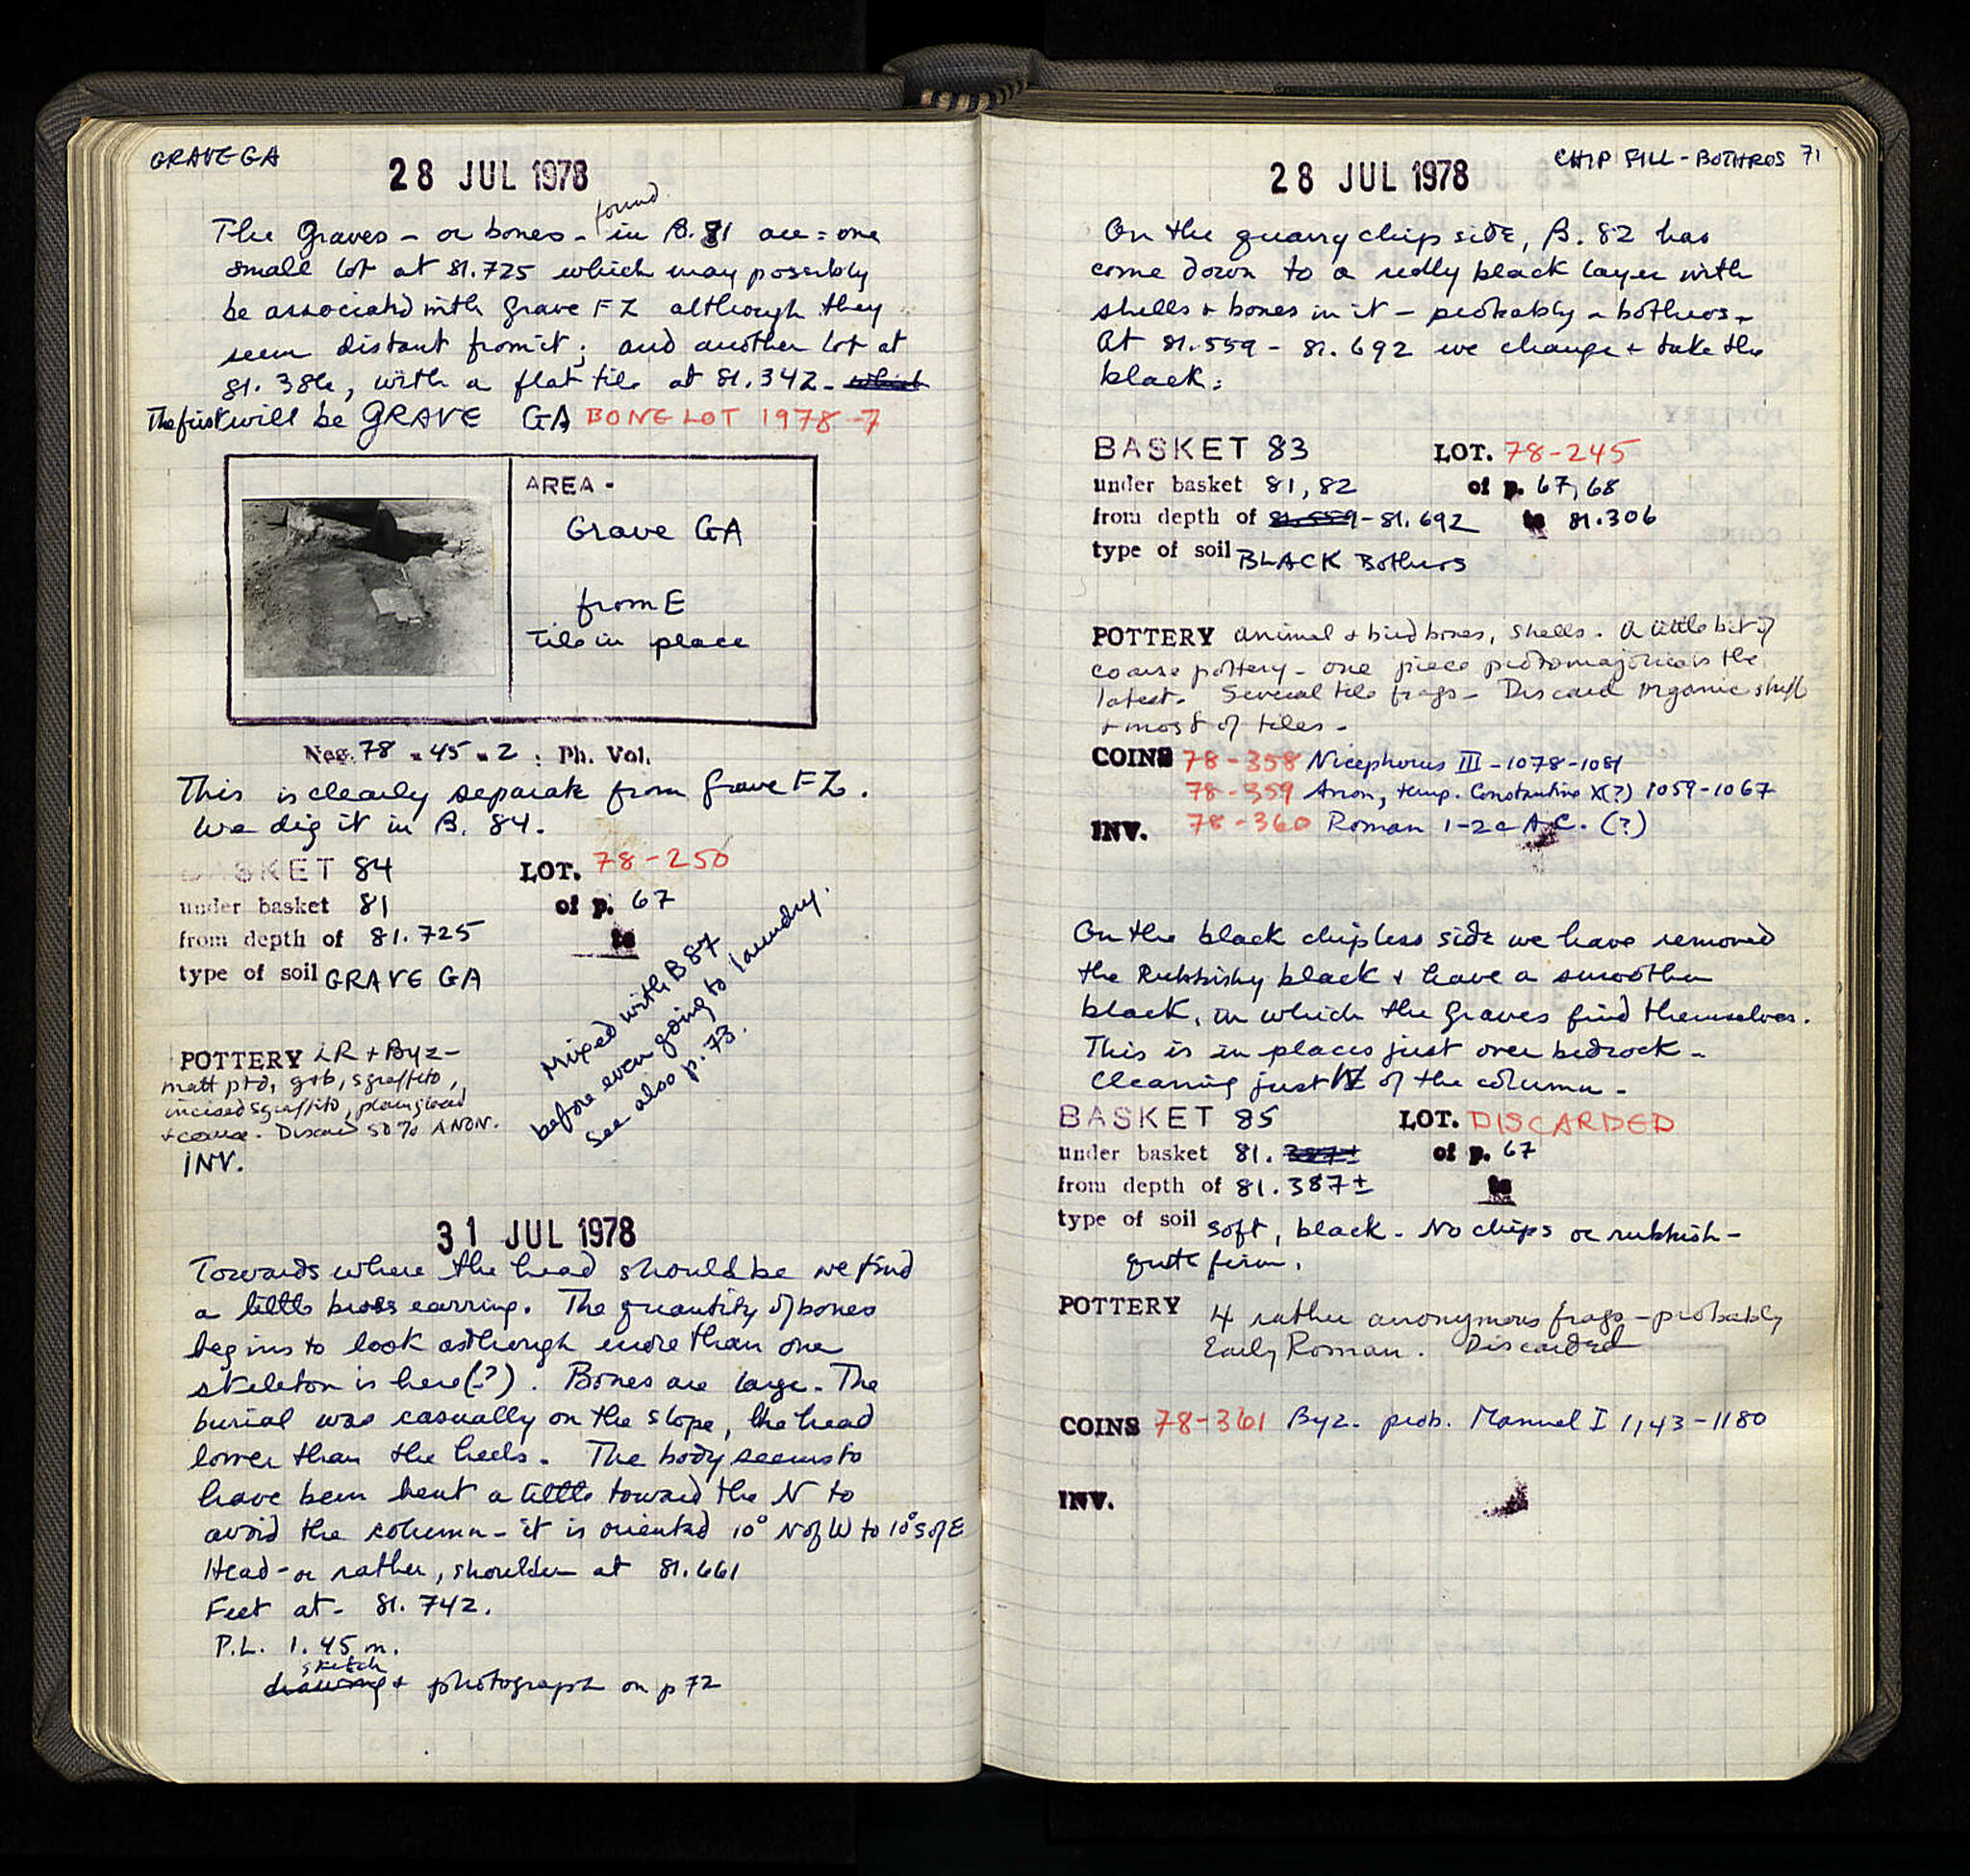 GRAVE GA
28 JUL 1978
The Graves - or bones - found in B. 81 are: one
small lot at 81.725 which may possibly
be associated with Grave FZ although they
seem distant from it; and another lot at
81.386, with a flat tile at 81.342. which
The first will be GRAVE GA BONE LOT 1978-7
AREA -
Grave GA
from E
Tile in place
Neg. 78 - 45 - 2 : Ph. Vol.
This is clearly separate from Grave FZ.
We dig it in B. 84.
BASKET 84 LOT. 78-250
under basket 81 of p. 67
from depth of 81.725 to
type of soil GRAVE GA
Mixed with B 87
before even going to laundry.
See also p. 73.
POTTERY LR + Byz -
matt ptd, grb, sgraffito,
incised sgraffito, plain glazed
+ coarse. Discard 50% ANON.
INV.
31 JUL 1978
Towards where the head should be we find
a little brass earring. The quantity of bones
begins to look as though more than one
skeleton is here (?). Bones are large. The
burial was casually on the slope, the head
lower than the heels. The body seems to
have been bent a little toward the N to
avoid the column - it is oriented 10° N of W to 10° S of E
Head - or rather, shoulder at 81.661
Feet at - 81.742.
P.L. 1.45 m.
sketch
drawing + photograph on p 72
28 JUL 1978
CHIP FILL - BOTHROS 71
On the quarry chip side, B. 82 has
come down to a redly black layer with
shells + bones in it - probably a bothros.
At 81.559 - 81.692 we change + take the
black:
BASKET 83 LOT. 78-245
under basket 81, 82 of p. 67, 68
from depth of 81.559 - 81.692 to 81.306
type of soil BLACK Bothros
POTTERY animal + bird bones, shells. A little bit of
coarse pottery - one piece protomajolica is the
latest. Several tile frags - Discard organic stuff
+ most of tiles -
COINS 78-358 Nicephorus III - 1078-1081
78-359 Anon, temp. Constantine X(?) 1059-1067
INV. 78-360 Roman 1-2 c A.C. (?)
On the black chipless side we have removed
the Rubbishy black + have a smoother
black, in which the Graves find themselves.
This is in places just over bedrock -
Cleaning just W of the column -
BASKET 85 LOT. DISCARDED
under basket 81. 387± of p. 67
from depth of 81.387± to
type of soil soft, black - No chips or rubbish -
quite firm.
POTTERY 4 rather anonymous frags - probably
Early Roman. Discarded
COINS 78-361 Byz. prob. Manuel I 1143-1180
INV.